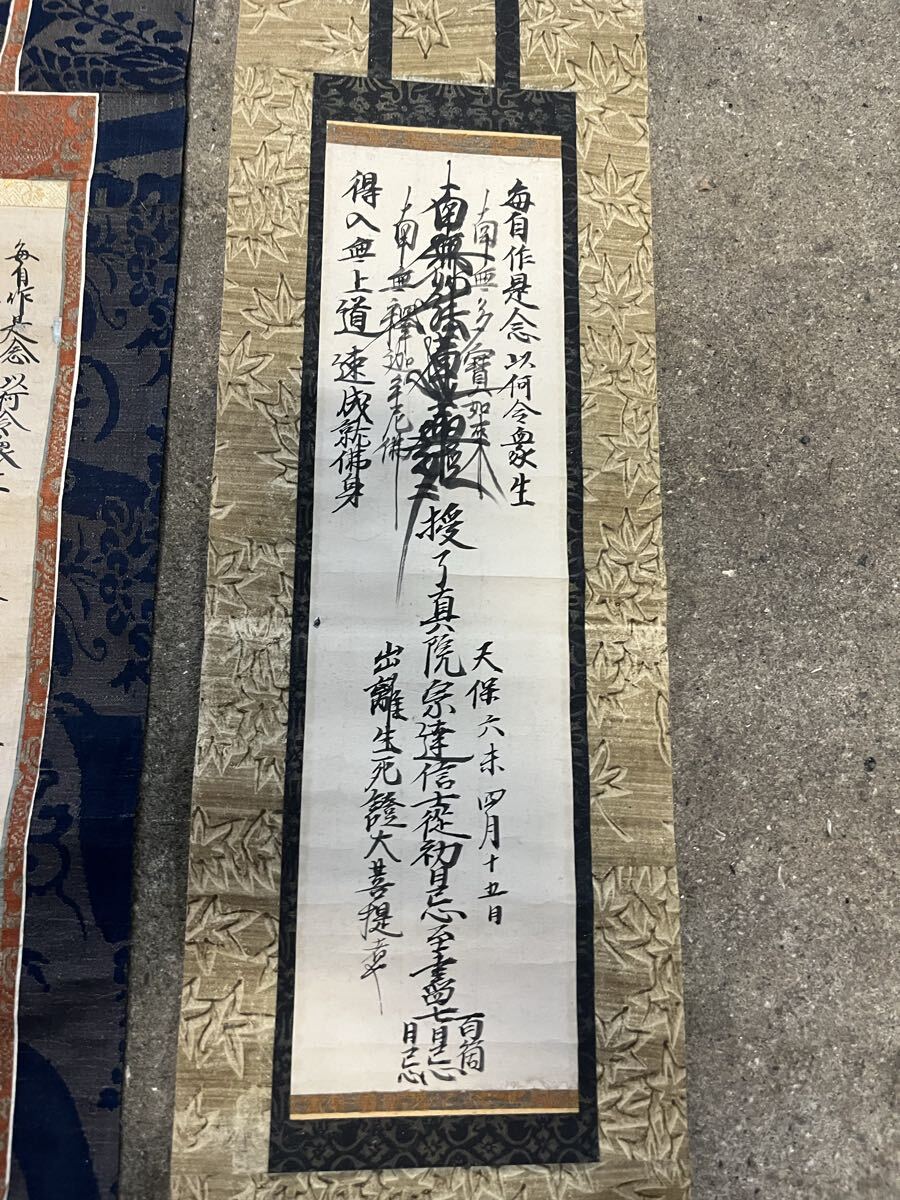 毎自作是念以何令衆生
南無多寶如来
南無妙法蓮華経
南無釋迦牟尼佛
得入無上道速成就佛身
授了真院宗達信士従初目忌至盡尚七目忌
百箇
日忌
天保六未四月十五日
出離生死證大菩提章
毎自作是念以何令衆